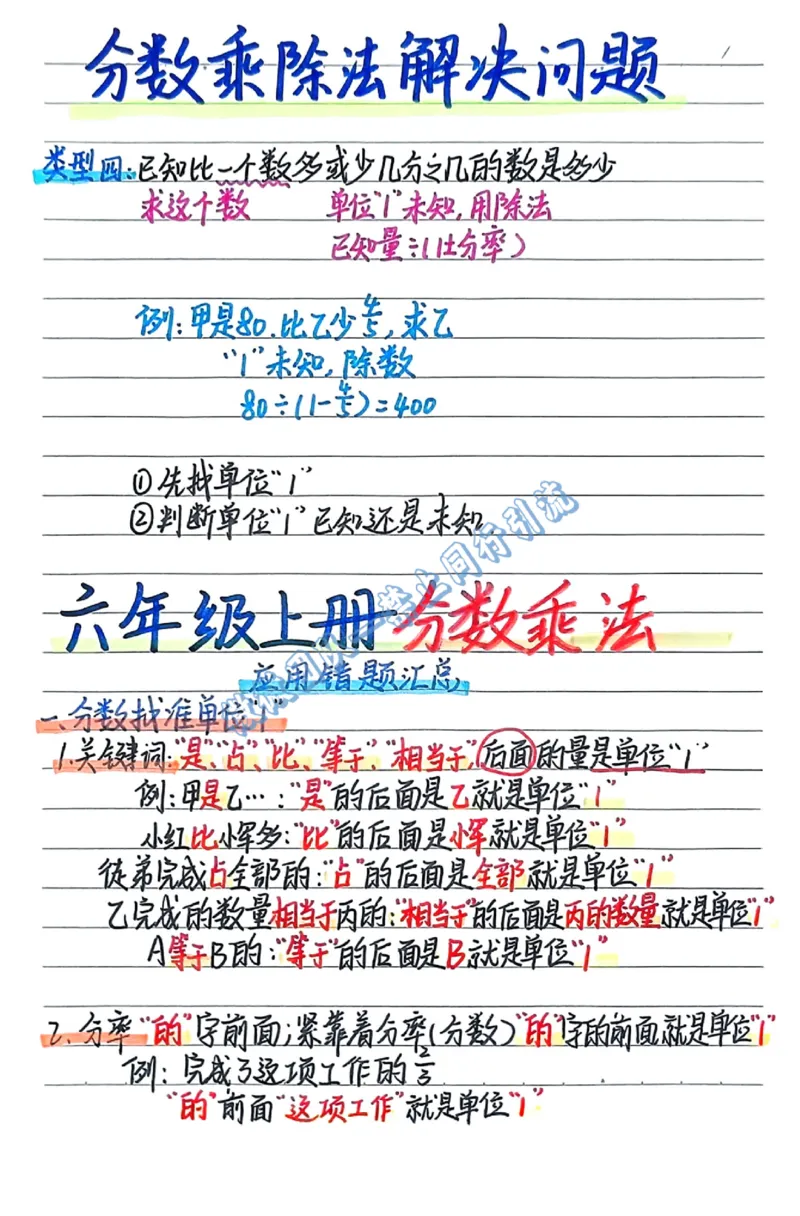 分数乘除法解决问题
类型四:已知比一个数多或少几分之几的数是多少
求这个数 单位"1"未知,用除法
已知量÷(1±分率)
例:甲是80.比乙少4/5,求乙
"1"未知,除数
80÷(1-4/5)=400
①先找单位"1"
②判断单位"1"已知还是未知
禁止同行引流
六年级上册分数乘法
应用错题汇总
一、分数找准单位"1"
1.关键词:"是"、"占"、"比"、"等于"、"相当于",后面的量是单位"1"
例:甲是乙…:"是"的后面是乙就是单位"1"
小红比小军多:"比"的后面是小军就是单位"1"
徒弟完成占全部的:"占"的后面是全部就是单位"1"
乙完成的数量相当于丙的:"相当于"的后面是丙的数量就是单位"1"
A等于B的:"等于"的后面是B就是单位"1"
2.分率"的"字前面;紧靠着分率(分数)"的"字的前面就是单位"1"
例:完成了这项工作的2/3
"的"前面"这项工作"就是单位"1"